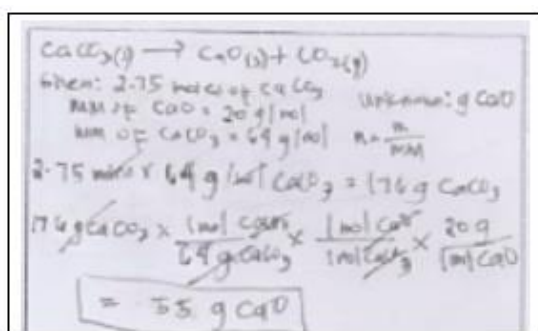 CaCO₃(s) → CaO(s) + CO₂(g)
Given: 2.75 moles of CaCO₃
Unknown: g CaO
MM of CaO = 20 g/mol
MM of CaCO₃ = 64 g/mol n = m/MM
2.75 moles x 64 g/mol CaCO₃ = 176 g CaCO₃
176 g CaCO₃ x 1 mol CaCO₃/64 g CaCO₃ x 1 mol CaO/1 mol CaCO₃ x 20 g/1 mol CaO
= 55 g CaO